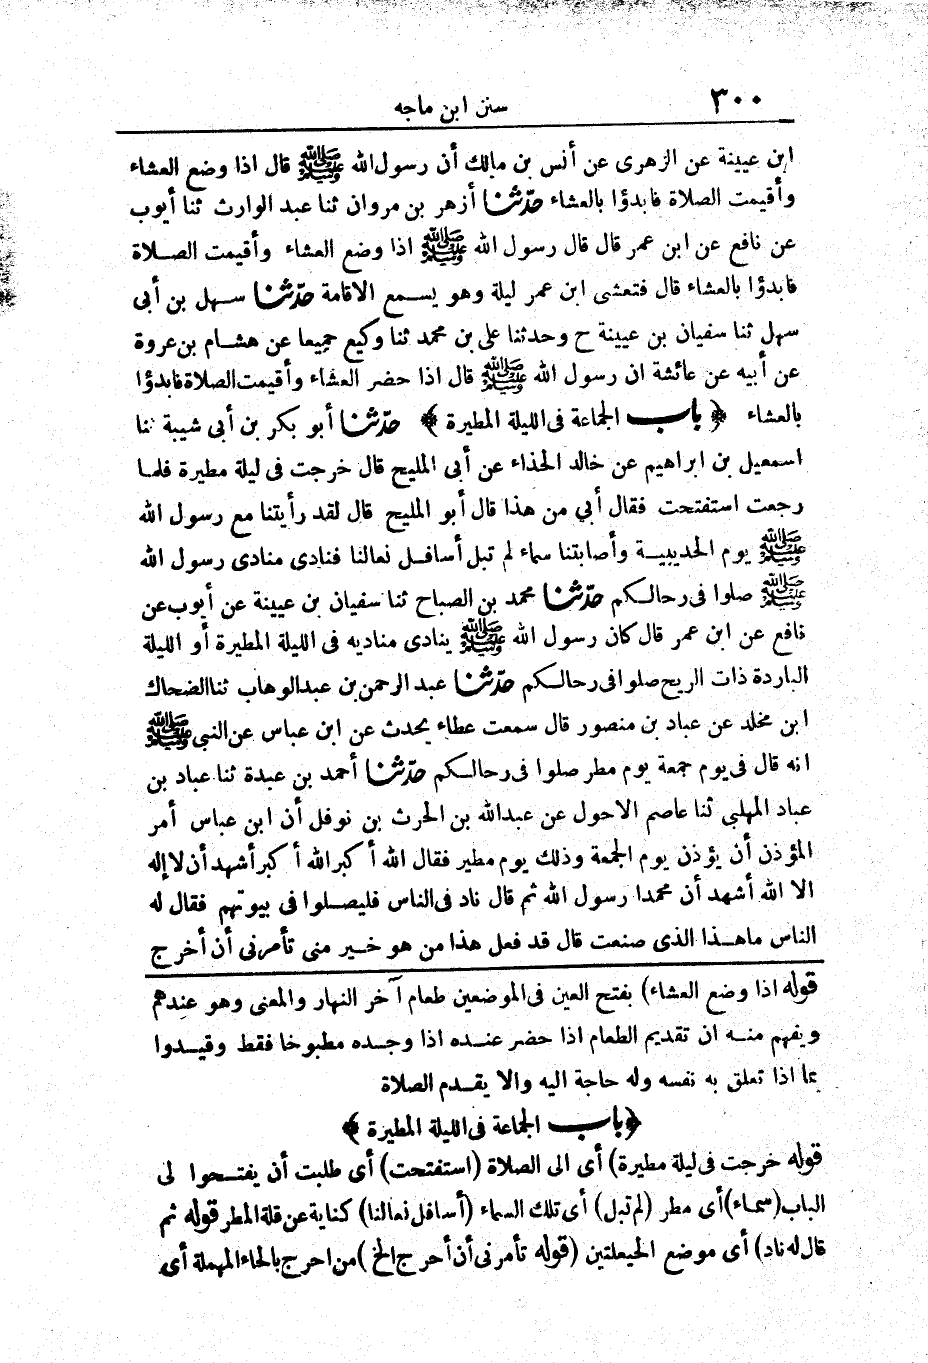 ٣٠٠
سنن ابن ماجه
ابن عيينة عن الزهرى عن أنس بن مالك أن رسول الله ﷺ قال اذا وضع العشاء
وأقيمت الصلاة فابدؤا بالعشاء حدّثنا أزهر بن مروان ثنا عبد الوارث ثنا أيوب
عن نافع عن ابن عمر قال قال رسول الله ﷺ اذا وضع العشاء وأقيمت الصلاة
فابدؤا بالعشاء قال فتعشى ابن عمر ليلة وهو يسمع الاقامة حدّثنا سهل بن أبى
سهل ثنا سفيان بن عيينة ح وحدثنا على بن محمد ثنا وكيع جميعا عن هشام بن عروة
عن أبيه عن عائشة ان رسول الله ﷺ قال اذا حضر العشاء وأقيمت الصلاة فابدؤا
بالعشاء ﴿ باب الجماعة فى الليلة المطيرة ﴾ حدّثنا أبو بكر بن أبى شيبة ثنا
اسمعيل بن ابراهيم عن خالد الحذاء عن أبى المليح قال خرجت فى ليلة مطيرة فلما
رجعت استفتحت فقال أبي من هذا قال أبو المليح قال لقد رأيتنا مع رسول الله
ﷺ يوم الحديبية وأصابتنا سماء لم تبل أسافل نعالنا فنادى منادى رسول الله
ﷺ صلوا فى رحالكم حدّثنا محمد بن الصباح ثنا سفيان بن عيينة عن أيوب عن
نافع عن ابن عمر قال كان رسول الله ﷺ ينادى مناديه فى الليلة المطيرة أو الليلة
الباردة ذات الريح صلوا فى رحالكم حدّثنا عبد الرحمن بن عبدالوهاب ثنا الضحاك
ابن مخلد عن عباد بن منصور قال سمعت عطاء يحدث عن ابن عباس عن النبى ﷺ
انه قال فى يوم جمعة يوم مطر صلوا فى رحالكم حدّثنا أحمد بن عبدة ثنا عباد بن
عباد المهلبي ثنا عاصم الاحول عن عبدالله بن الحرث بن نوفل أن ابن عباس أمر
المؤذن أن يؤذن يوم الجمعة وذلك يوم مطير فقال الله أكبر الله أكبر أشهد أن لا إله
الا الله أشهد أن محمدا رسول الله ثم قال ناد فى الناس فليصلوا فى بيوتهم فقال له
الناس ماهذا الذى صنعت قال قد فعل هذا من هو خير منى تأمرنى أن أخرج
قوله اذا وضع العشاء) بفتح العين فى الموضعين طعام آخر النهار والمعنى وهو عندهم
ويفهم منه ان تقديم الطعام اذا حضر عنده اذا وجده مطبوخا فقط وقيدوا
بما اذا تعلق به نفسه وله حاجة اليه والا يقدم الصلاة
﴿ باب الجماعة فى الليلة المطيرة ﴾
قوله خرجت فى ليلة مطيرة) أى الى الصلاة (استفتحت) أى طلبت أن يفتحوا لى
الباب (سماء) أى مطر (لم تبل) أى تلك السماء (أسافل نعالنا) كناية عن قلة المطر قوله ثم
قال له ناد) أى موضع الحيعلتين (قوله تأمرنى أن أحرج الخ) من احرج بالحاء المهملة أى